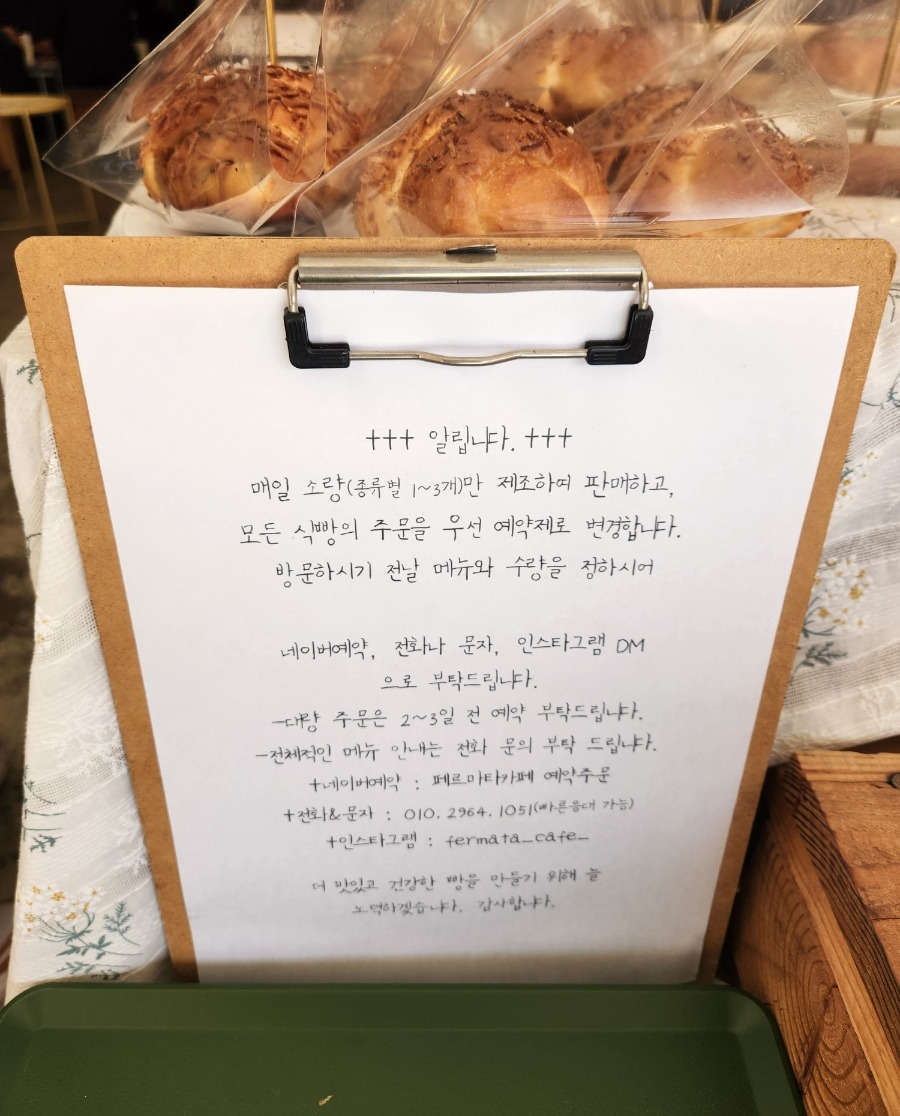 +++ 알립니다. +++
매일 소량(종류별 1~3개)만 제조하여 판매하고,
모든 식빵의 주문을 우선 예약제로 변경합니다.
방문하시기 전날 메뉴와 수량을 정하시어
네이버예약, 전화나 문자, 인스타그램 DM
으로 부탁드립니다.
-대량 주문은 2~3일 전 예약 부탁드립니다.
-전체적인 메뉴 안내는 전화 문의 부탁 드립니다.
+네이버예약 : 페르마타카페 예약주문
+전화&문자 : 010. 2964. 1051(빠른응대 가능)
+인스타그램 : fermata_cafe_
더 맛있고 건강한 빵을 만들기 위해 늘
노력하겠습니다. 감사합니다.